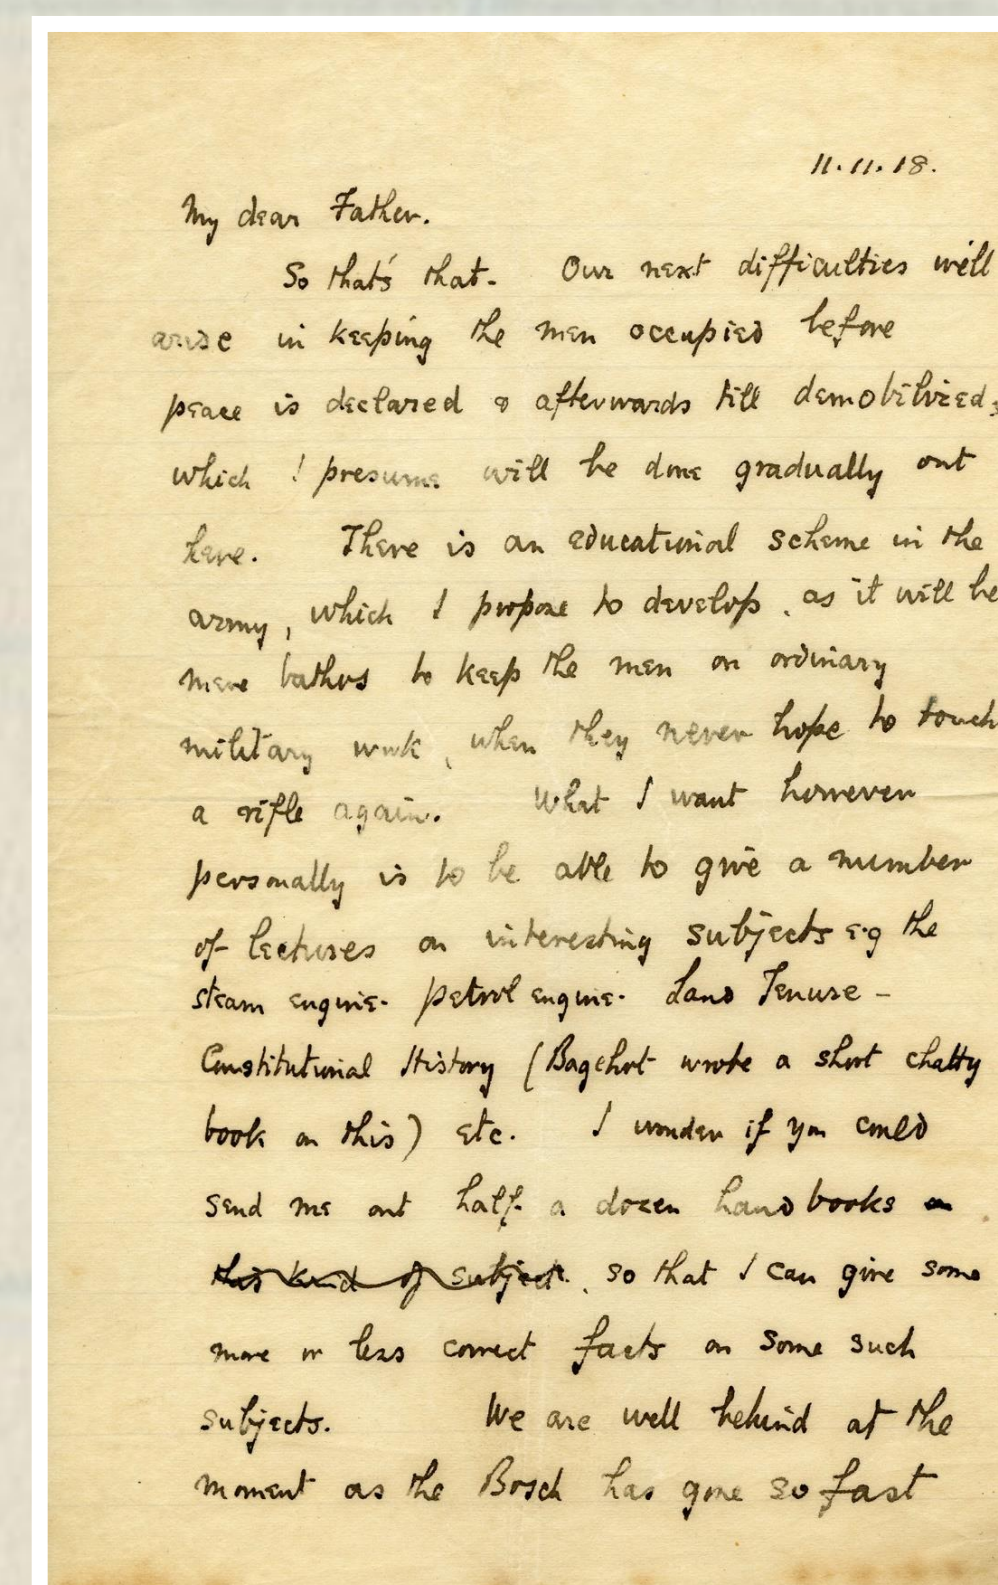 11.11.18.
My dear Father.
So that's that. Our next difficulties will
arise in keeping the men occupied before
peace is declared & afterwards till demobilized,
which I presume will be done gradually out
here. There is an educational scheme in the
army, which I propose to develop, as it will be
mere bathos to keep the men on ordinary
military work, when they never hope to touch
a rifle again. What I want however
personally is to be able to give a number
of lectures on interesting subjects e.g the
steam engine. petrol engine. Land Tenure -
Constitutional History (Bagehot wrote a short chatty
book on this) etc. I wonder if you could
send me out half a dozen hand books on
this kind of subject. so that I can give some
more or less correct facts on some such
subjects. We are well behind at the
moment as the Bosch has gone so fast